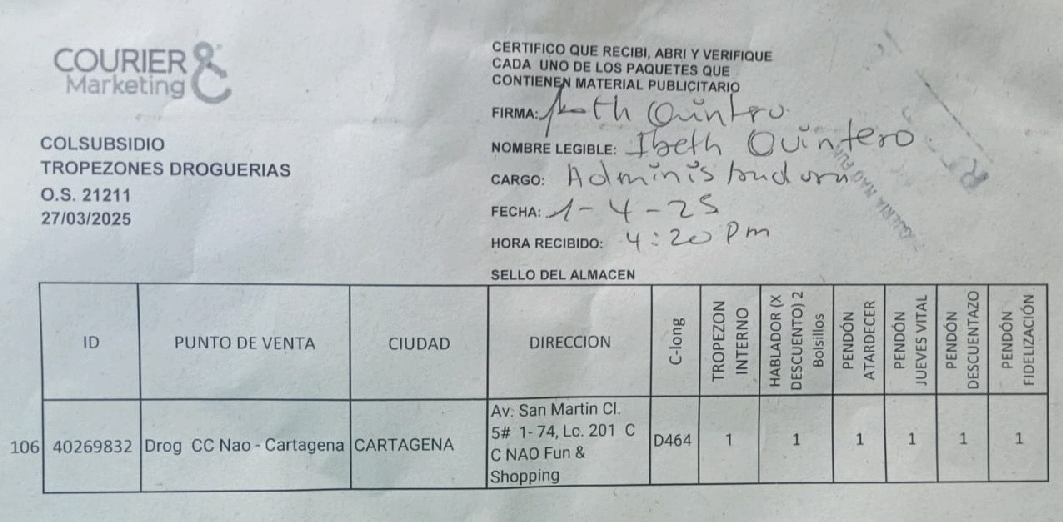 COURIER &
Marketing
COLSUBSIDIO
TROPEZONES DROGUERIAS
O.S. 21211
27/03/2025
CERTIFICO QUE RECIBI, ABRI Y VERIFIQUE
CADA UNO DE LOS PAQUETES QUE
CONTIENEN MATERIAL PUBLICITARIO
FIRMA: Quintero
NOMBRE LEGIBLE: Ibeth Quintero
CARGO: Administradora
FECHA: 1-4-25
HORA RECIBIDO: 4:20 Pm
SELLO DEL ALMACEN
ID
PUNTO DE VENTA
CIUDAD
DIRECCION
C-long
TROPEZON
INTERNO
HABLADOR (X
DESCUENTO) 2
Bolsillos
PENDÓN
ATARDECER
PENDÓN
JUEVES VITAL
PENDÓN
DESCUENTAZO
PENDÓN
FIDELIZACIÓN
106
40269832
Drog CC Nao - Cartagena
CARTAGENA
Av. San Martin Cl.
5# 1- 74, Lc. 201 C
C NAO Fun &
Shopping
D464
1
1
1
1
1
1